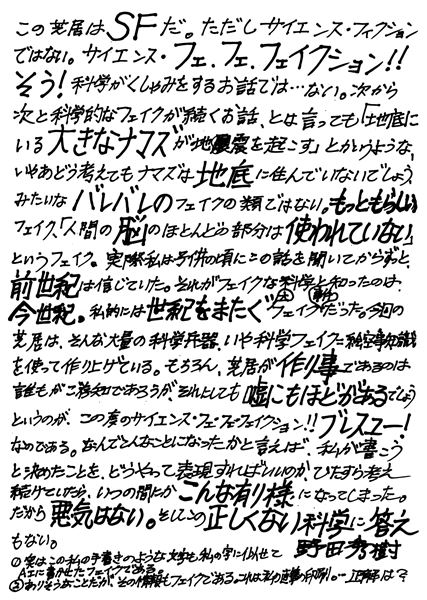 この芝居はSFだ。ただしサイエンス・フィクション
ではない。サイエンス・フェ、フェ、フェイクション!!
そう!科学がくしゃみをするお話では…ない。次から
次と科学的なフェイクが続くお話、とは言っても「地底に
いる大きなナマズが地震を起こす」とかいうような、
いやあどう考えてもナマズは地底に住んでいないでしょう、
みたいなバレバレのフェイクの類ではない。もっともらしい
フェイク、「人間の脳のほとんどの部分は使われていない」
というフェイク。実際私は子供の頃にこの話を聞いてからずっと、
前世紀は信じていた。それがフェイクな科学と知ったのは、
今世紀。私的には世紀をまたぐ フェイクだった。今回の
芝居は、そんな大量の科学兵器、いや科学フェイクに
を使って作り上げている。もちろん、芝居が作り事であるのは
誰もがご承知であろうが、それにしても嘘にもほどがあるでしょう
というのが、この度のサイエンス・フェ・フェ・フェクション!!ブレスユー!
なのである。なんでこんなことになったかと言えば、私が書こう
と決めたことを、どうやって表現すればいいのか、ひたすら考え
続けていたら、いつの間にかこんな有り様になってしまった。
だから悪気はない。そしてこの正しくない科学に答え
もない。 野田秀樹
①実はこの私の手書きのような文字も私の字に似せて
AIに書かせたフェイクである。
②ありそうなことだが、その情報もフェイクである。これは私の直筆の印刷。…正解は?